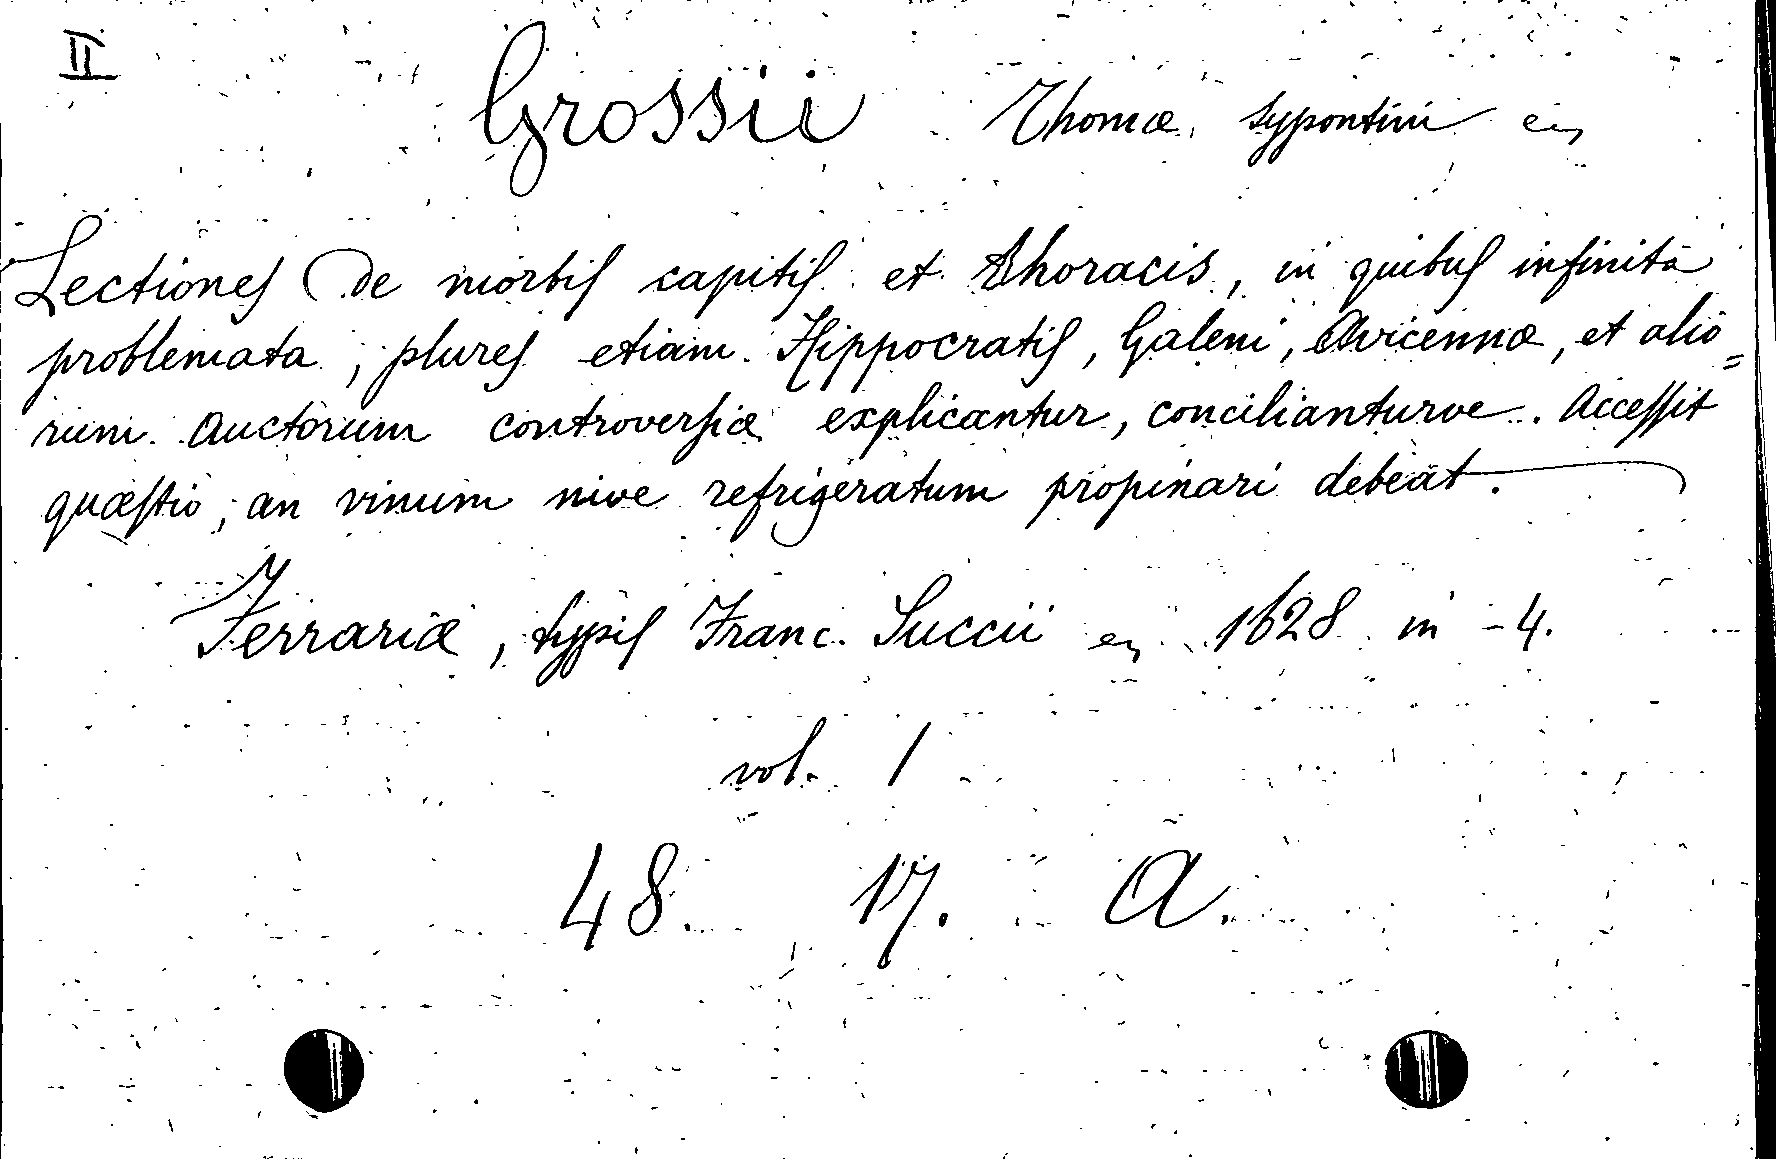 II
Grossii Thomæ Sypontini
Lectiones de morbis capitis et Thoracis, in quibus infinita
problemata, plures etiam Hippocratis, Galeni, Avicennæ, et alio=
rum Auctorum controversiæ explicantur, concilianturve. Accessit
quæstio, an vinum nive refrigeratum propinari debeat.
Ferrariæ, typis Franc. Succii 1628 in-4.
vol. 1
48. 17. A.